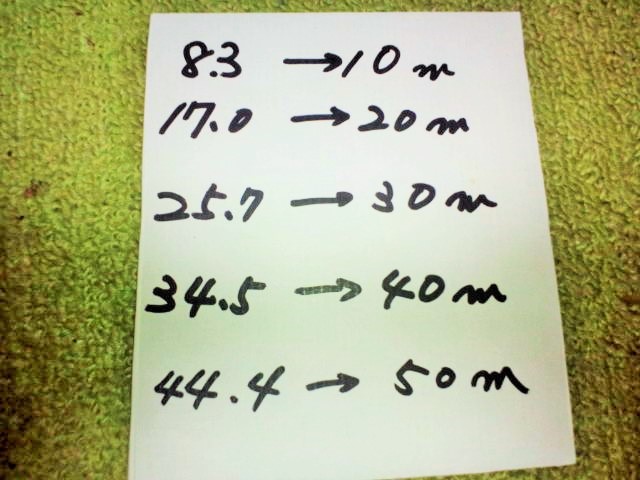 8.3 → 10 m
17.0 → 20 m
25.7 → 30 m
34.5 → 40 m
44.4 → 50 m